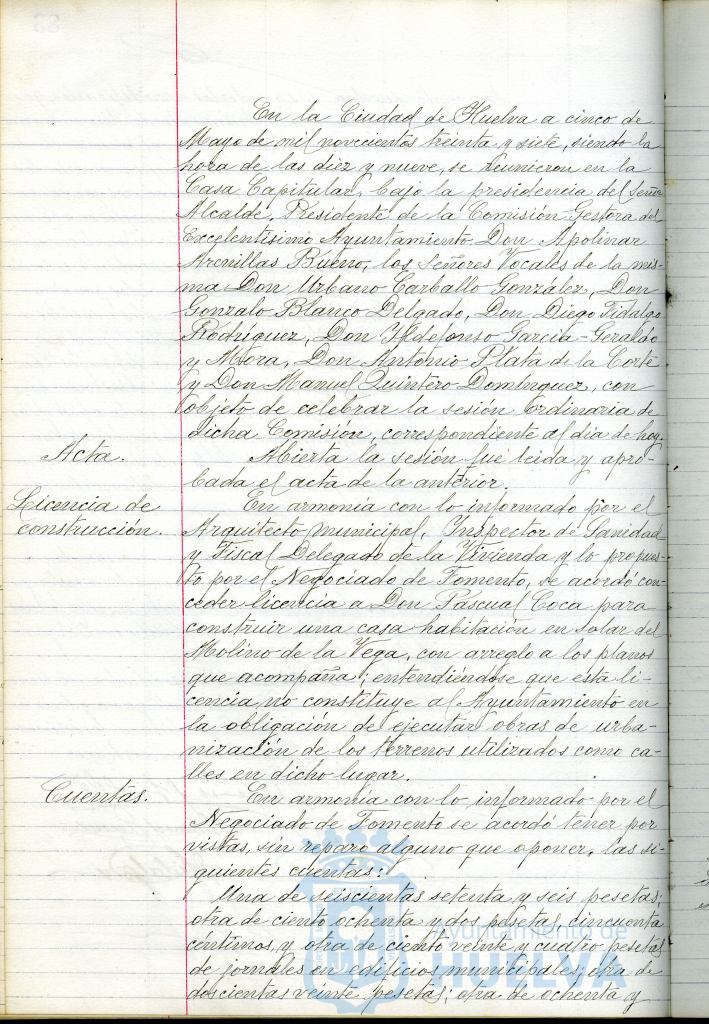 En la Ciudad de Huelva a cinco de
Mayo de mil novecientos treinta y siete, siendo la
hora de las diez y nueve, se reunieron en la
Casa Capitular, bajo la presidencia del Señor
Alcalde, Presidente de la Comisión Gestora del
Excelentísimo Ayuntamiento Don Apolinar
Arenillas Bueno, los Señores Vocales de la mis-
ma Don Urbano Carballo González, Don
Gonzalo Blanco Delgado, Don Diego Fidalgo
Rodríguez, Don Ildefonso García-Geraldo
y Mora, Don Antonio Plata de la Corte
y Don Manuel Quintero Domínguez, con
objeto de celebrar la sesión ordinaria de
dicha Comisión, correspondiente al día de hoy.
Acta.
Abierta la sesión fué leida y apro-
bada el acta de la anterior.
Licencia de
construcción.
En armonía con lo informado por el
Arquitecto municipal, Inspector de Sanidad
y Fiscal Delegado de la Vivienda y lo propues-
to por el Negociado de Fomento, se acordó con-
ceder licencia a Don Pascual Coca para
construir una casa habitación en solar del
Molino de la Vega, con arreglo a los planos
que acompaña; entendiéndose que esta li-
cencia no constituye al Ayuntamiento en
la obligación de ejecutar obras de urba-
nización de los terrenos utilizados como ca-
lles en dicho lugar.
Cuentas.
En armonía con lo informado por el
Negociado de Fomento se acordó tener por
vistas, sin reparo alguno que oponer, las si-
guientes cuentas:
Una de seiscientas setenta y seis pesetas;
otra de ciento ochenta y dos pesetas, cincuenta
centimos, y otra de ciento veinte y cuatro pesetas
de jornales en edificios municipales; otra de
doscientas veinte pesetas; otra de ochenta y
Ayuntamiento de
HUELVA